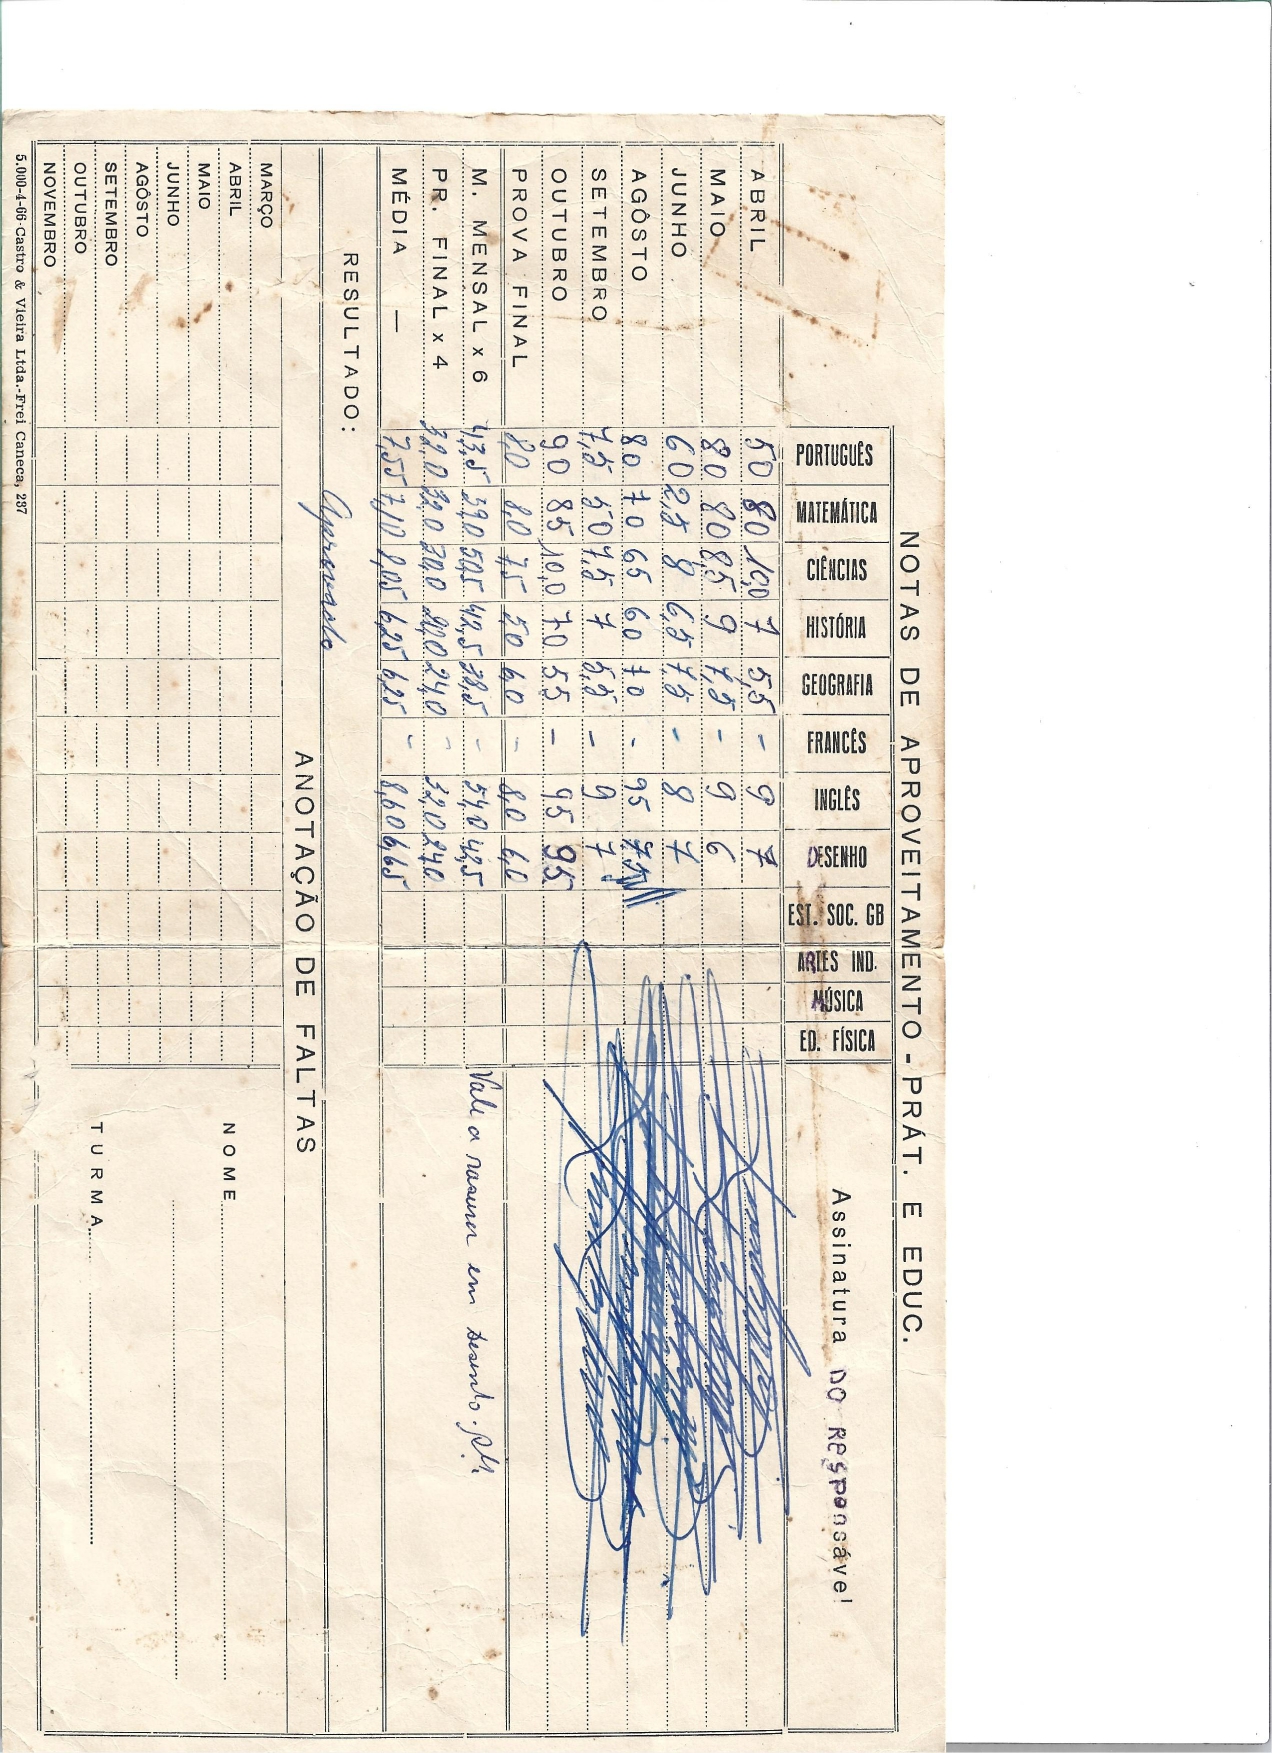 NOTAS DE APROVEITAMENTO - PRÁT. E EDUC.
PORTUGUÊS MATEMÁTICA CIÊNCIAS HISTÓRIA GEOGRAFIA FRANCÊS INGLÊS DESENHO EST. SOC. GB ARTES IND. MÚSICA ED. FÍSICA Assinatura DO RESPonsável
ABRIL 50 80 10,0 7 5,5 - 9 7
MAIO 80 80 8,5 9 7,5 - 9 6
JUNHO 60 2,5 8 6,5 7,5 - 8 7
AGÔSTO 80 70 65 60 70 - 95 75
SETEMBRO 7,5 50 7,5 7 5,5 - 9 7
OUTUBRO 90 85 10,0 70 55 - 95 95
PROVA FINAL 8,0 8,0 7,5 5,0 6,0 - 8,0 6,0
M. MENSAL x 6 43,5 39,0 50,5 42,5 38,5 - 54,0 42,5 Vale a rasura em Desenho.
PR. FINAL x 4 32,0 32,0 30,0 20,0 24,0 - 32,0 24,0
MÉDIA — 7,55 7,10 8,05 6,25 6,25 - 8,60 6,65
RESULTADO: Aprovado
ANOTAÇÃO DE FALTAS
MARÇO
ABRIL
NOME
MAIO
JUNHO
AGÔSTO
SETEMBRO
TURMA
OUTUBRO
NOVEMBRO
5.000-4-66-Castro & Vieira Ltda.-Frei Caneca, 287